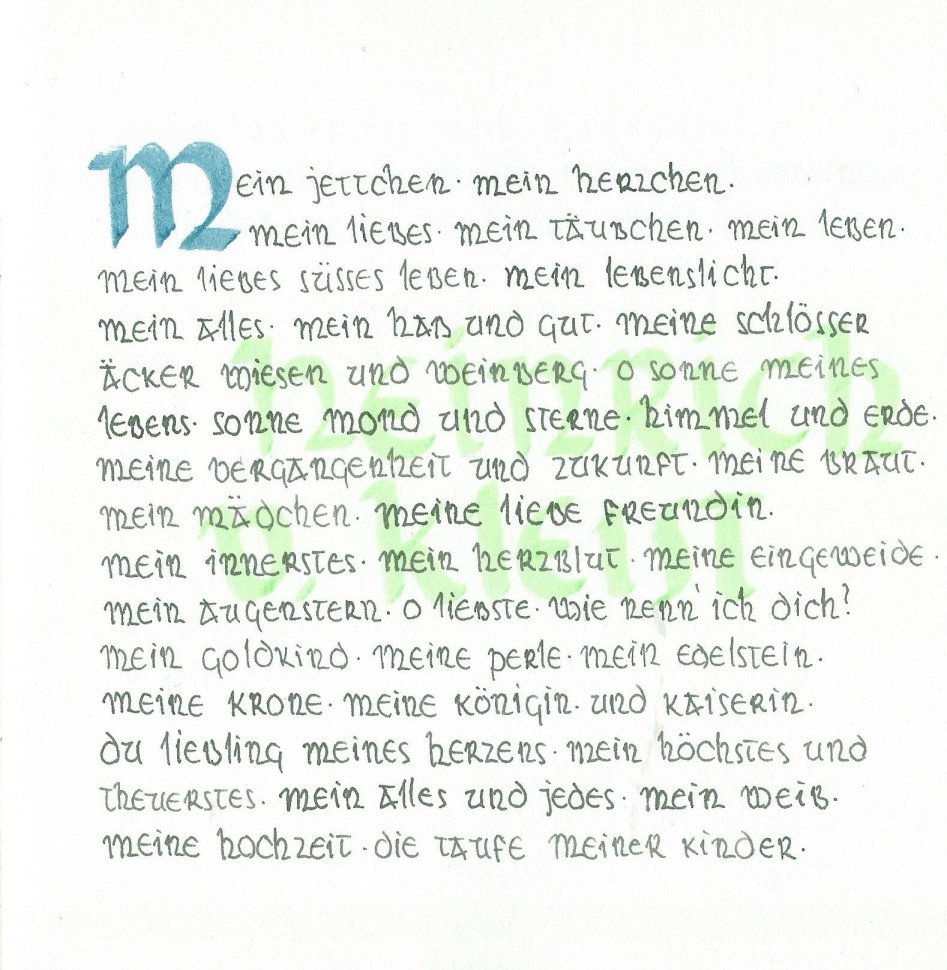 Mein jettchen· mein herzchen.
mein liebes· mein täubchen· mein leben·
mein liebes süsses leben· mein lebenslicht·
mein alles· mein hab und gut· meine schlösser
äcker wiesen und weinberg· o sonne meines
lebens· sonne mond und sterne· himmel und erde·
meine vergangenheit und zukunft· meine braut·
mein mädchen· meine liebe freundin.
mein innerstes· mein herzblut· meine eingeweide·
mein augenstern· o liebste· wie nenn' ich dich?
mein goldkind· meine perle· mein edelstein·
meine krone· meine königin· und kaiserin·
du liebling meines herzens· mein höchstes und
theuerstes· mein alles und jedes· mein weib·
meine hochzeit· die taufe meiner kinder·
heinrich
v. kleist